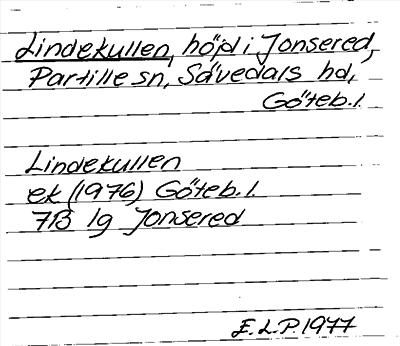 Lindekullen, höjd i Jonsered,
Partille sn, Sävedals hd,
Göteb. l.
Lindekullen
ek (1976) Göteb. l.
7B 1g Jonsered
E. L. P. 1977